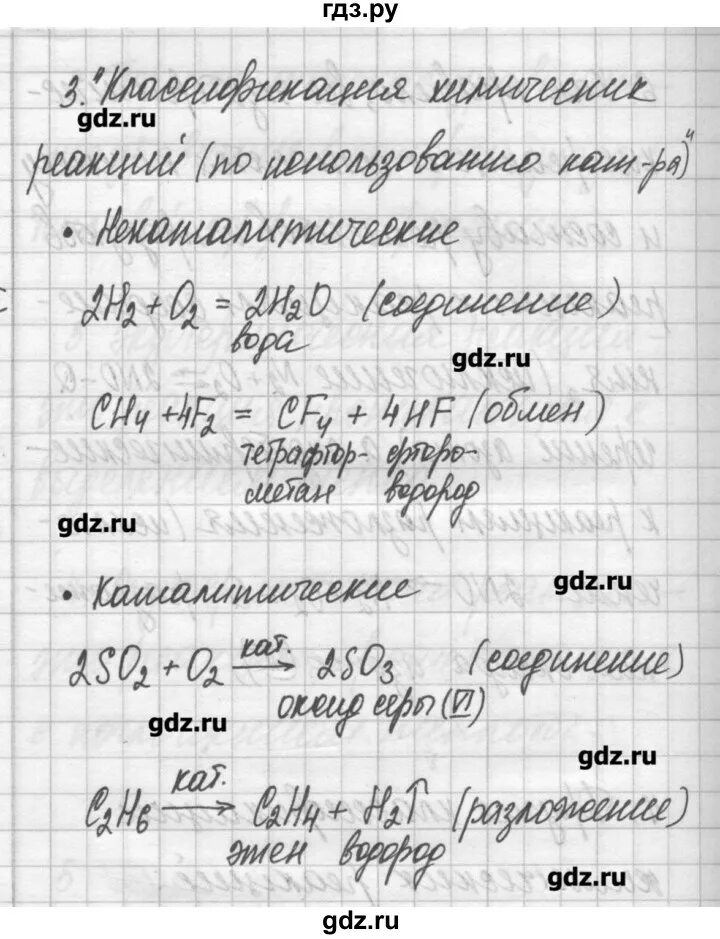 гдз.ру
3. "Классификация химических
gdz.ru
реакций (по использованию кат-ра)"
• Некаталитические
2H₂ + O₂ = 2H₂O (соединение)
вода
gdz.ru
CH₄ + 4F₂ = CF₄ + 4HF (обмен)
тетрафтор- фторо-
метан водород
gdz.ru
gdz.ru
• Каталитические
2SO₂ + O₂ кат.→ 2SO₃ (соединение)
оксид серы (VI)
gdz.ru
gdz.ru
C₂H₆ кат.→ C₂H₄ + H₂↑ (разложение)
этен водород
gdz.ru
gdz.ru